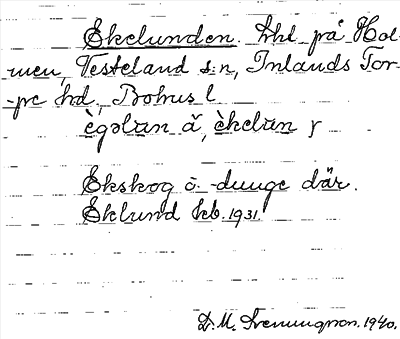 Ekelunden. Lhl på Hol-
men, Vesteland s:n, Inlands Tor-
-pe hd, Bohus l
ègəlun ä, èkelun y
Ekskog o. -dunge där.
Eklund kb. 1931.
D. M. 1940.